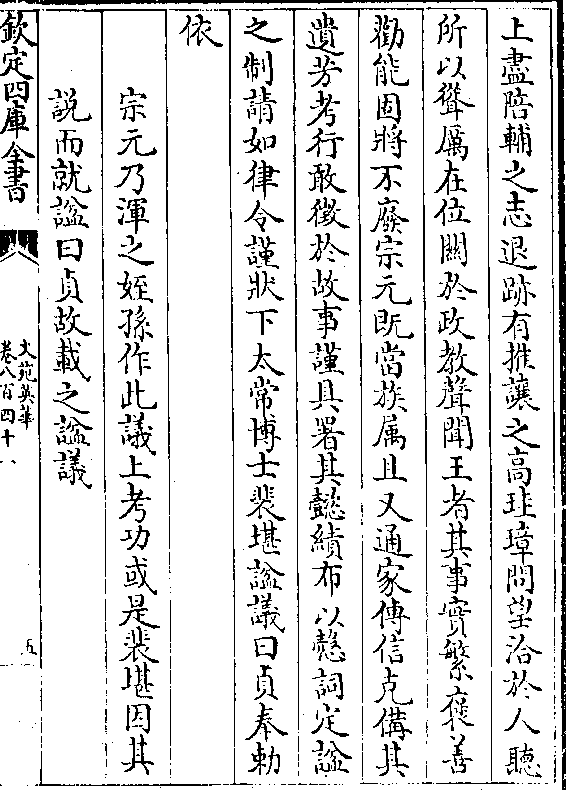 上盡陪輔之志退跡有推讓之高珪璋問望洽於人聽
所以聳厲在位關於政教聲聞王者其事實繁褒善
勸能固將不廢宗元既當族屬且又通家傳信克備其
遺芳考行敢徵於故事謹具署其懿績布以懿詞定諡
之制請如律令謹狀下太常博士裴堪諡議曰貞奉勅
依
宗元乃渾之姪孫作此議上考功或是裴堪因其
説而就諡曰貞故載之諡議
欽定四庫全書
文苑英華
卷八百四十
五